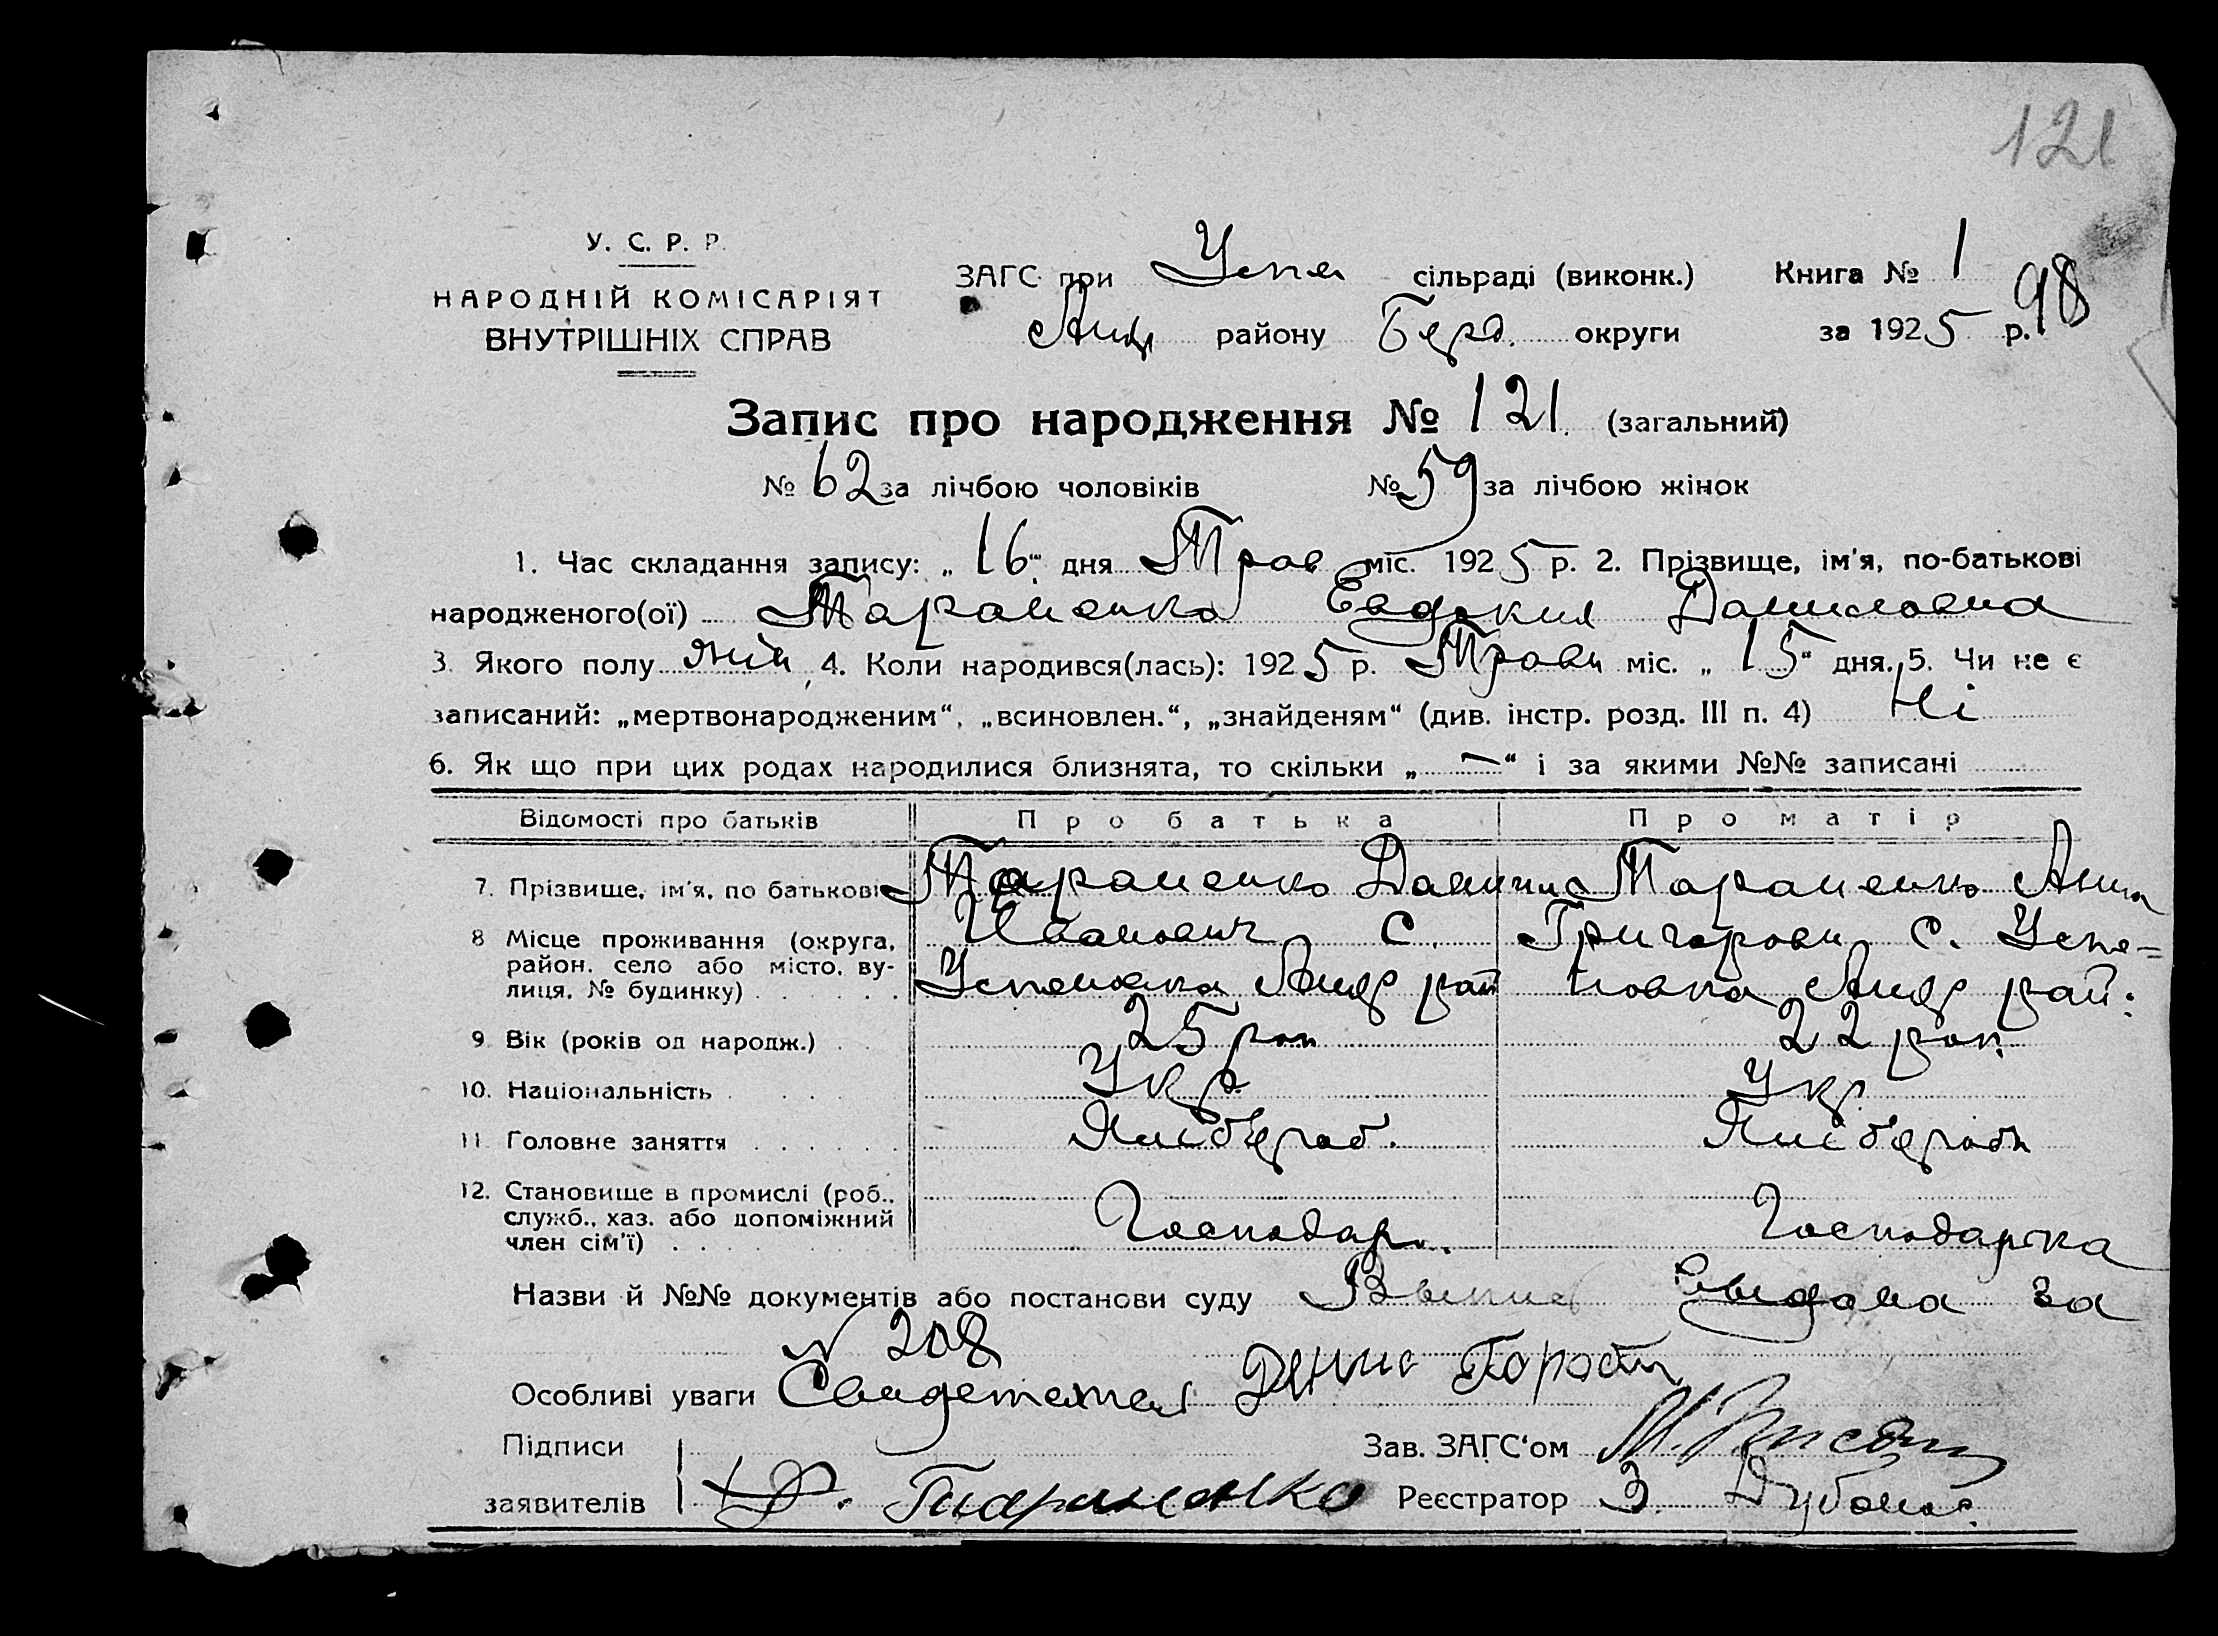 121
У. С. Р. Р.
НАРОДНІЙ КОМІСАРІЯТ
ВНУТРІШНІХ СПРАВ
ЗАГС при Успен сільраді (виконк.) Книга № 1
98
району Берд. округи за 1925 р.
Запис про народження № 121. (загальний)
№ 62 за лічбою чоловіків № 59 за лічбою жінок
1. Час складання запису: „ 16 “ дня Трав міс. 1925 р. 2. Прізвище, ім'я, по-батькові
народженого(ої) Тараненко Евдокия Даниловна
3. Якого полу жін 4. Коли народився(лась): 1925 р. Травн міс. „ 15 “ дня. 5. Чи не є
записаний: „мертвонародженим“, „всиновлен.“, „знайденям“ (див. інстр. розд. III п. 4) Ні
6. Як що при цих родах народилися близнята, то скільки „ — “ і за якими №№ записані
Відомості про батьків Про батька Про матір
7. Прізвище, ім'я, по батькові Тараненко Данило Тараненко Анна
8 Місце проживання (округа, Иванович с. Григоровн с. Успе=
район, село або місто, ву- Успеновка Андр рай новка Андр рай:
лиця, № будинку)
9 Вік (років од народж.) 25 рок 22 рок
10. Національність Укр. Укр.
11. Головне заняття
12. Становище в промислі (роб.,
служб., хаз. або допоміжний Господар. Господарка
член сім'ї)
Назви й №№ документів або постанови суду Выпис выдана за
№ 208
Особливі уваги Свидетель
Підписи Зав. ЗАГС'ом
заявителів Тараненко Реєстратор З.